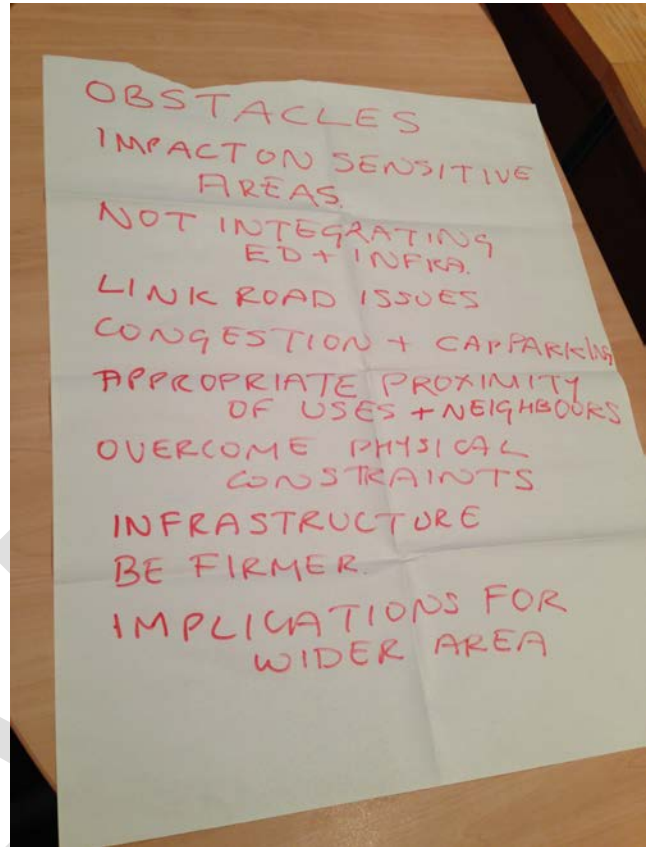 OBSTACLES
IMPACT ON SENSITIVE
AREAS.
NOT INTEGRATING
ED + INFRA.
LINK ROAD ISSUES
CONGESTION + CAPPARKING
APPROPRIATE PROXIMITY
OF USES + NEIGHBOURS
OVERCOME PHYSICAL
CONSTRAINTS
INFRASTRUCTURE
BE FIRMER.
IMPLICATIONS FOR
WIDER AREA